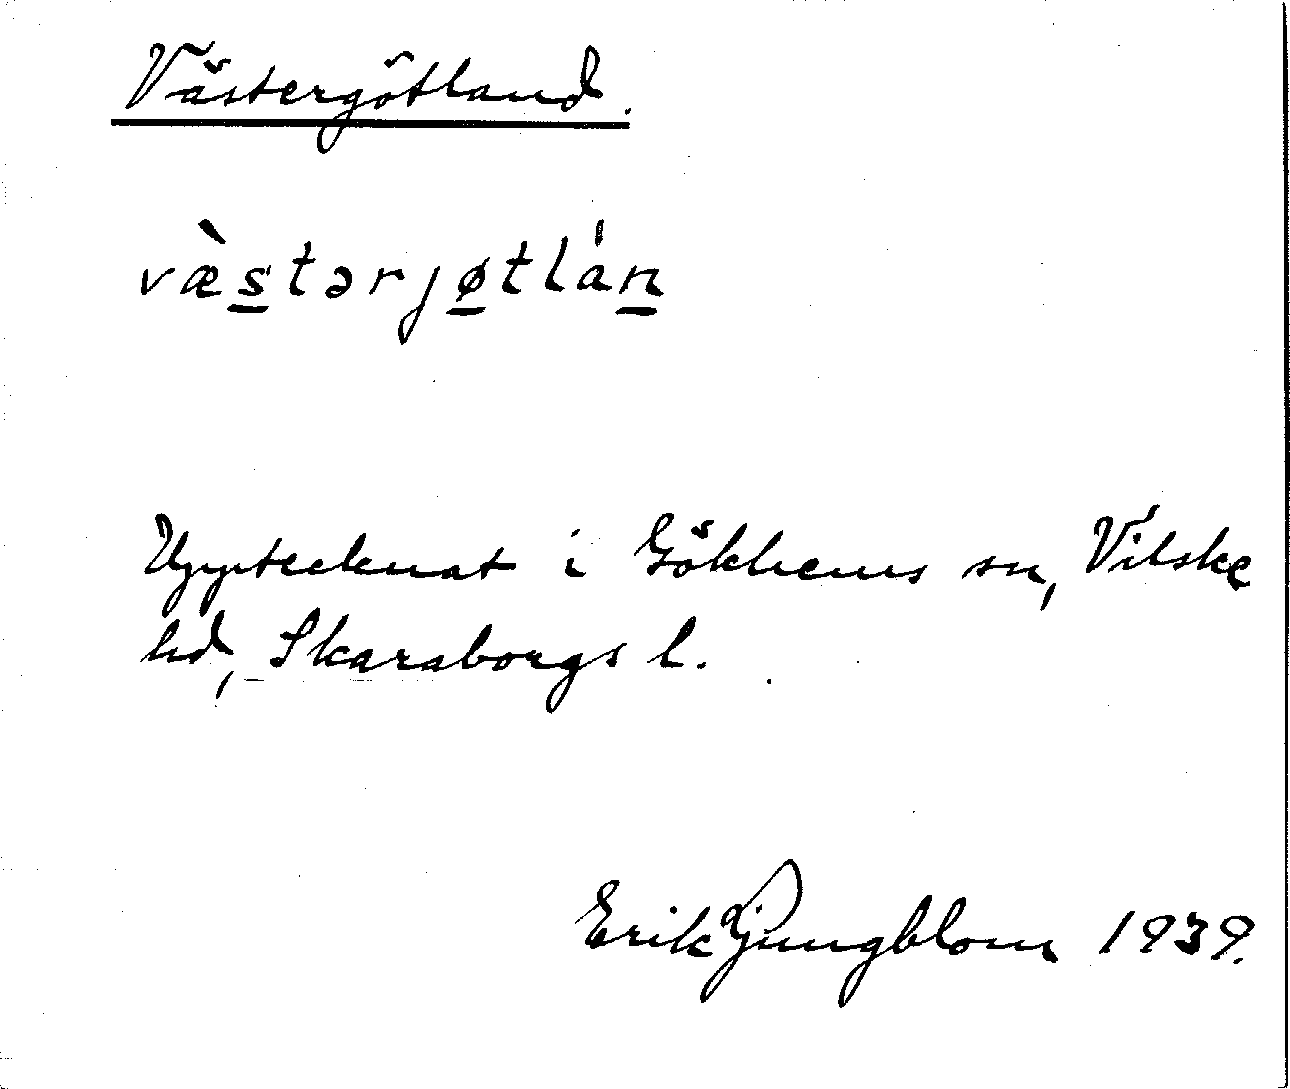 Västergötland.
væ̀stərjøtlán
Upptecknat i Gökhems sn, Vilske
hd, Skaraborgs l.
Erik Ljungblom 1939.